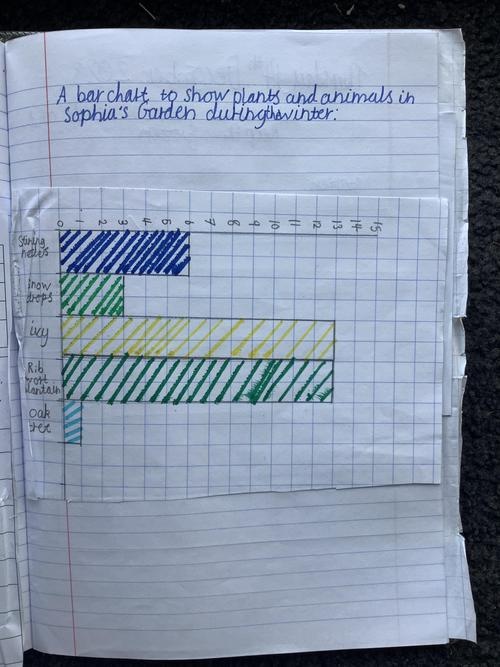 A bar chart to show plants and animals in
Sophia's Garden during the winter:
0 1 2 3 4 5 6 7 8 9 10 11 12 13 14 15
Stining
nettles
snow
drops
ivy
Rib
wort
plantain
oak
tree